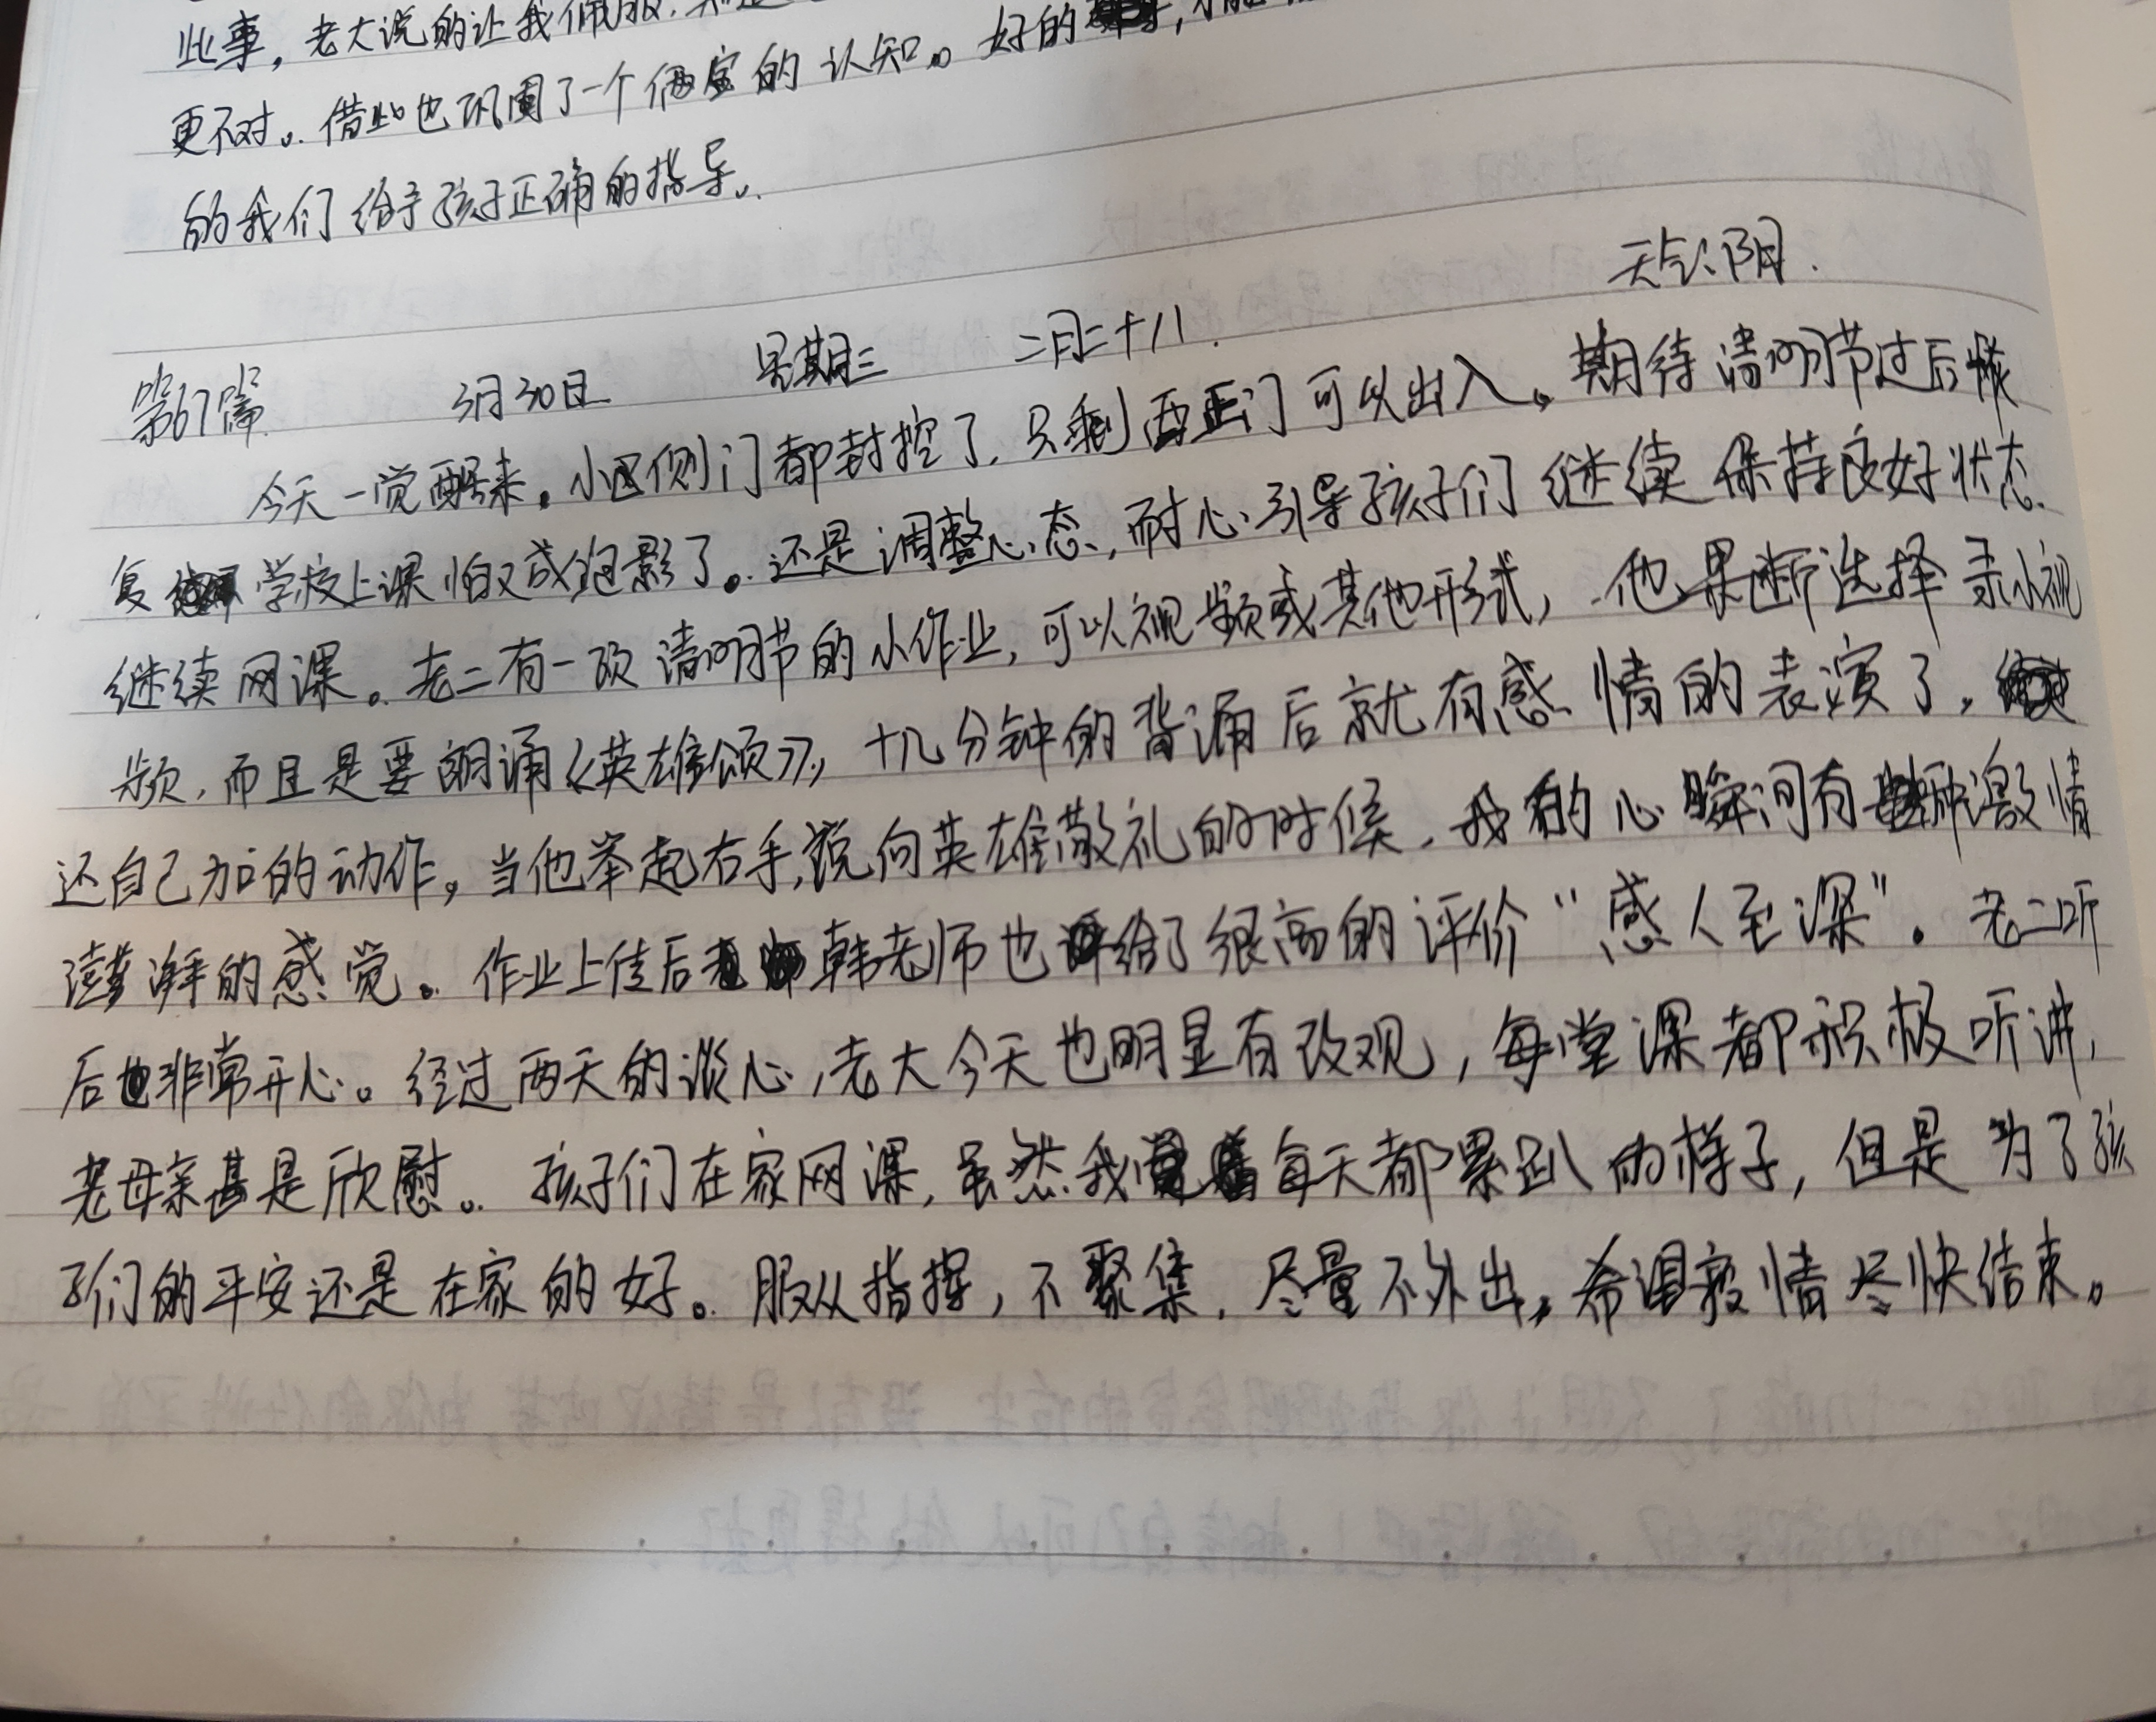 此事，老大说的让我佩服，
更不对。借此也巩固了一个俩宝的认知。好的
的我们给予孩子正确的指导。
天气：阴.
第67篇 3月30日 星期三 二月二十八.
今天一觉醒来。小区侧门都封控了，只剩西正门可以出入。期待清明节过后恢
复学校上课怕又成泡影了。还是调整心态，耐心引导孩子们继续保持良好状态
继续网课。老二有一项清明节的小作业，可以视频或其他形式，他果断选择录小视
频，而且是要朗诵《英雄颂》，十几分钟的背诵后就有感情的表演了，
还自己加的动作。当他举起右手，说向英雄敬礼的时候，我的心瞬间有种激情
澎湃的感觉。作业上传后韩老师也给了很高的评价“感人至深”。老二听
后也非常开心。经过两天的谈心，老大今天也明显有改观，每堂课都积极听讲，
老母亲甚是欣慰。孩子们在家网课，虽然我每天都累趴的样子，但是为了孩
子们的平安还是在家的好。服从指挥，不聚集，尽量不外出，希望疫情尽快结束。